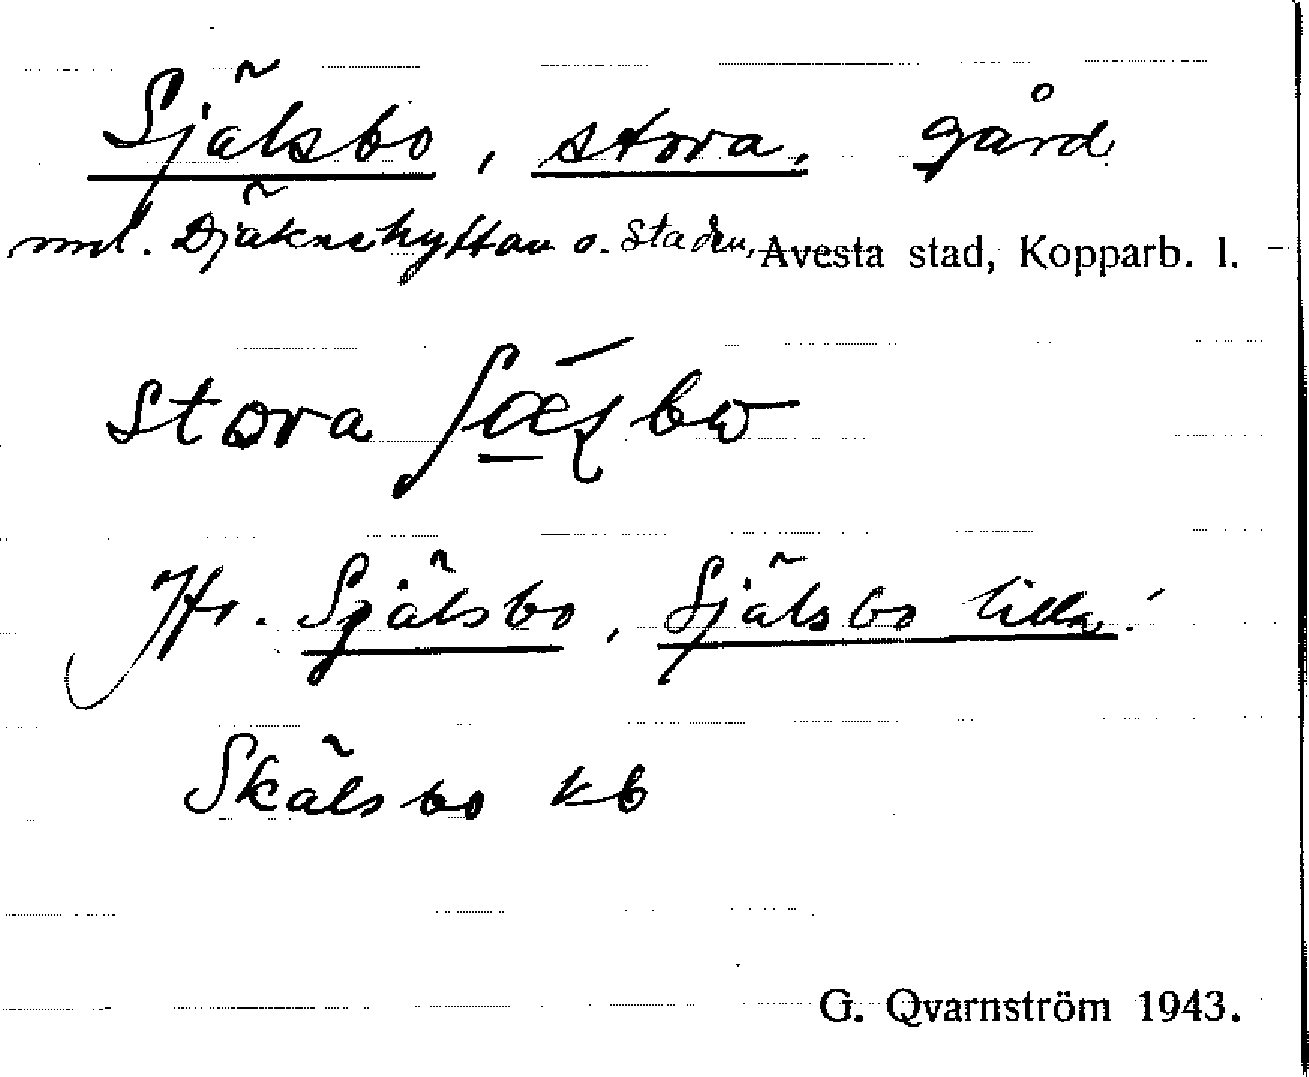 Själsbo, stora, gård
mel. Djäknehyttan o. staden, Avesta stad, Kopparb. l.
Jfr. Själsbo, Själsbo lilla!
Skälsbo kb
G. Qvarnström 1943.